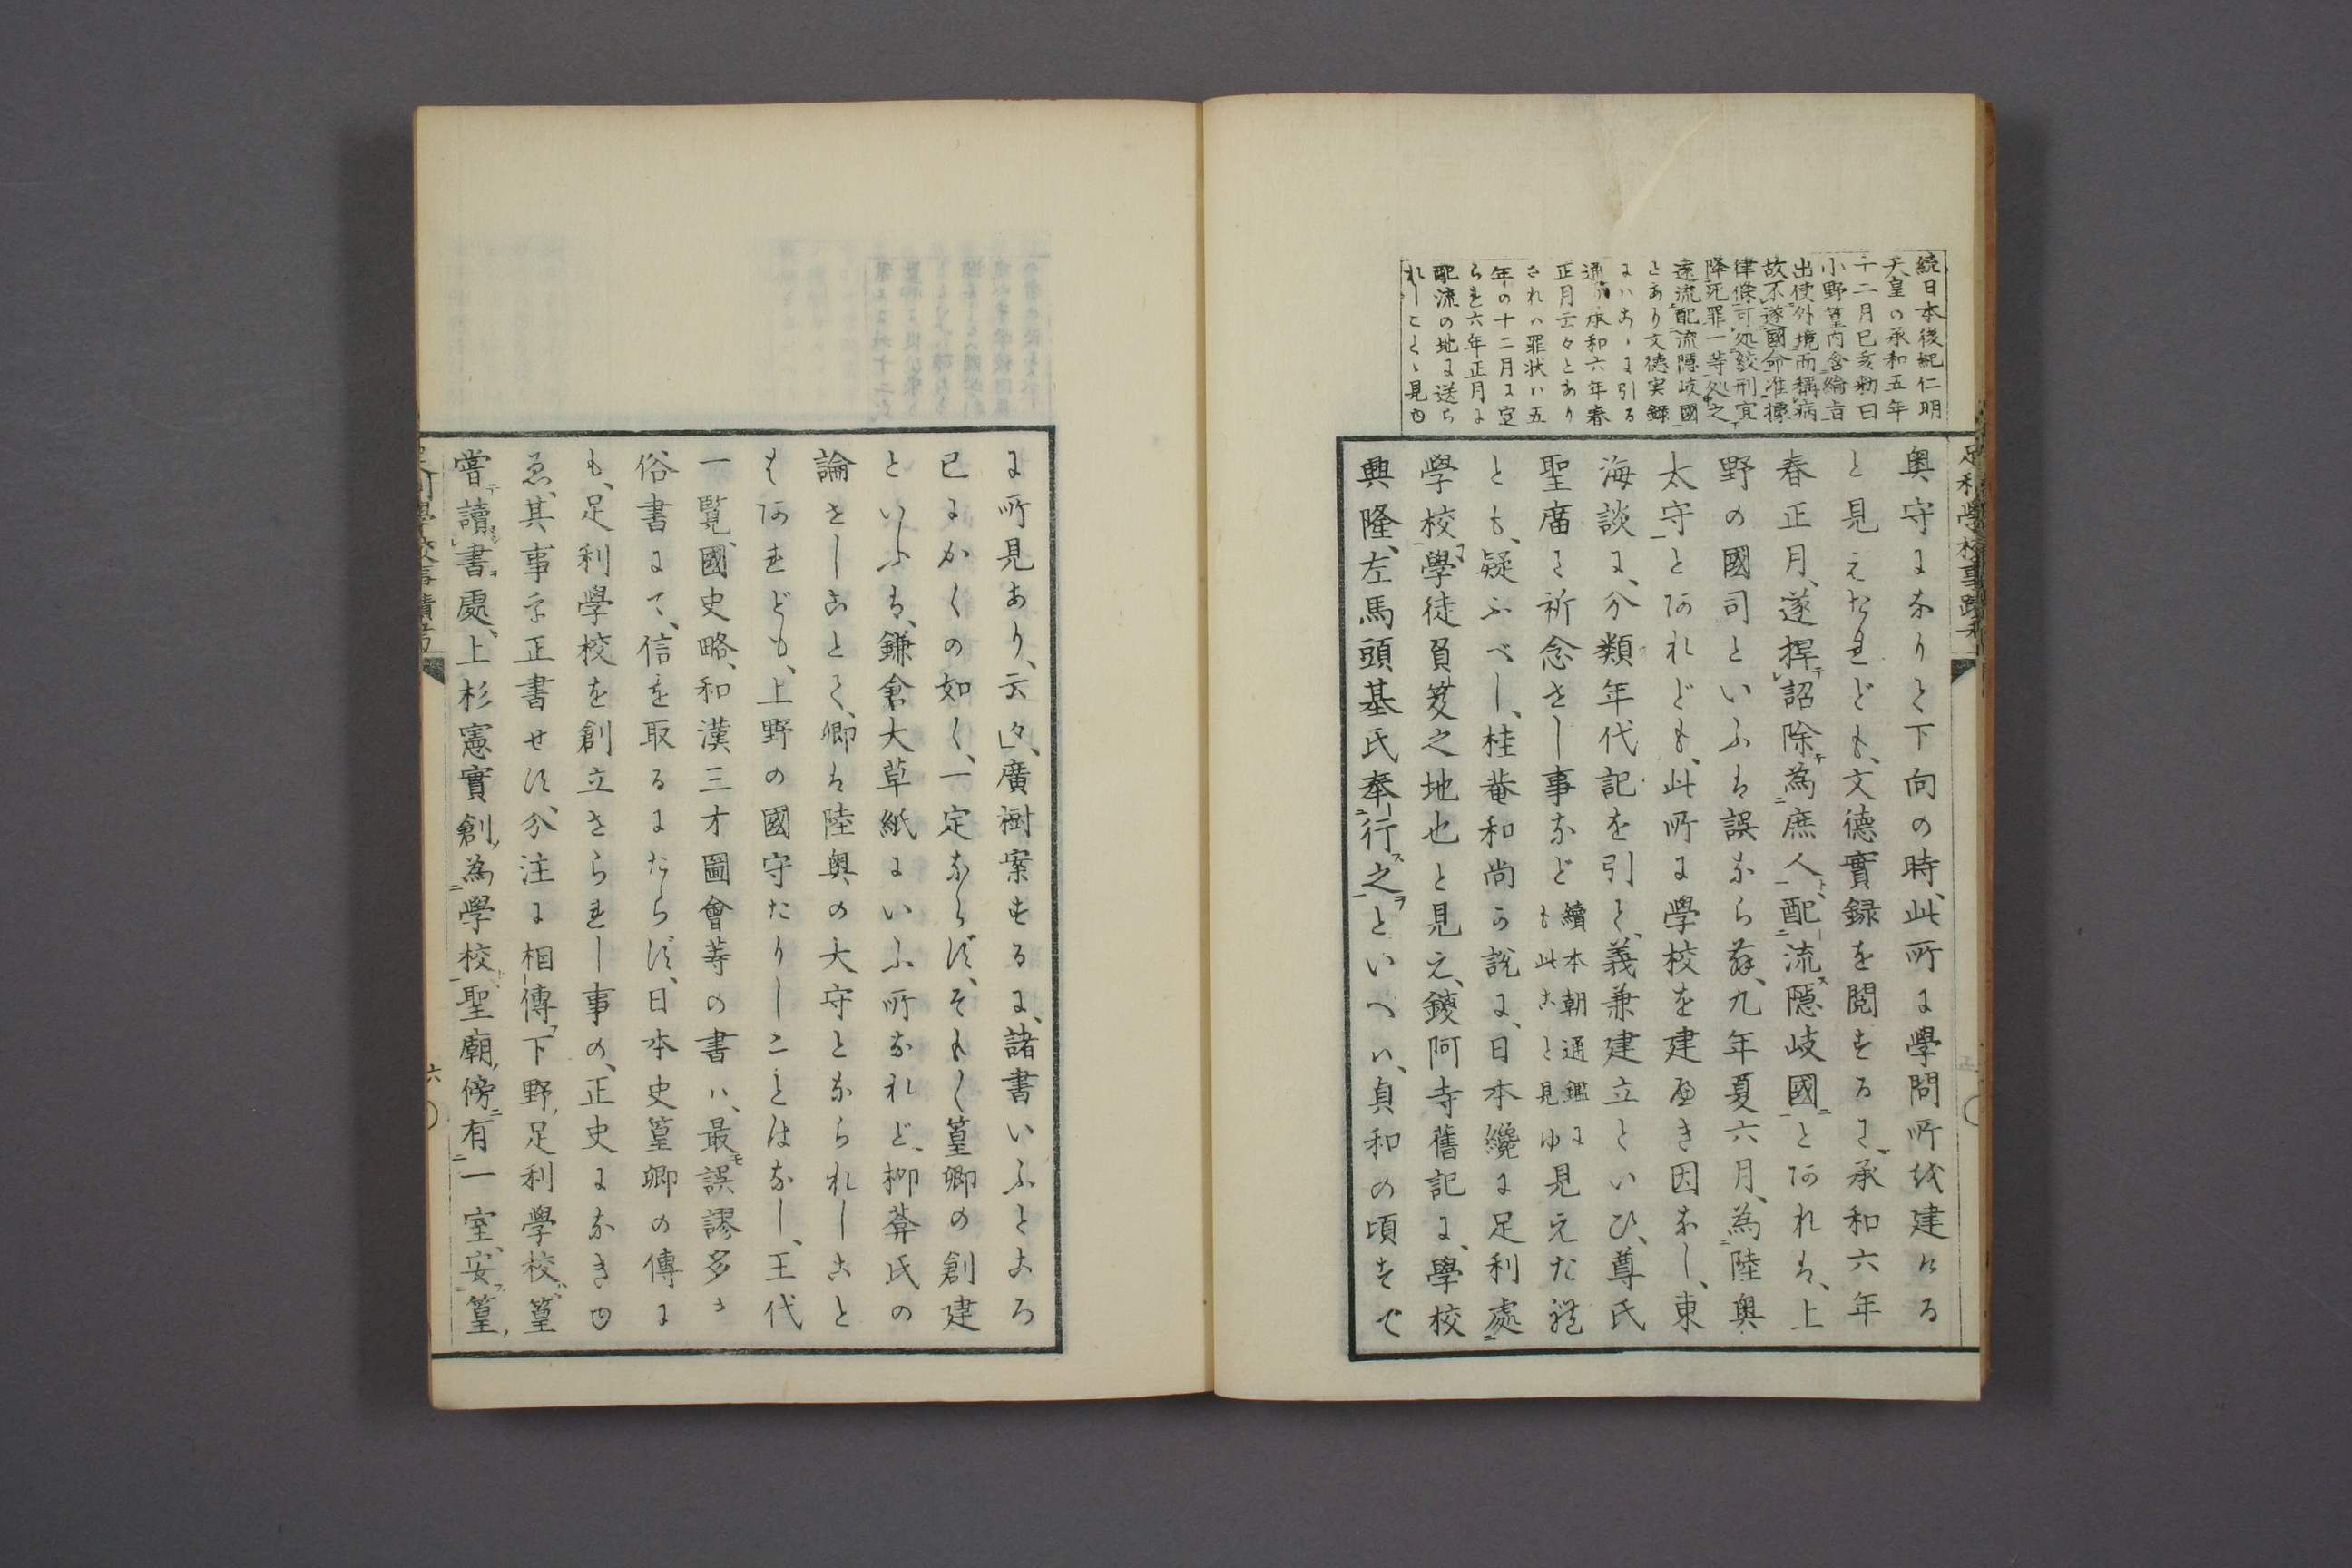 続日本後紀仁明
天皇の承和五年
十二月已亥勅曰
小野篁内含綸旨
出使外境而稱病
故不遂國命准據
律條可処絞刑宜
降死罪一等処之
遠流配流隠岐國
とあり文徳実録
にハあゝに引る
通り承和六年春
正月云々とあり
されハ罪状ハ五
年の十二月に定
られ六年正月に
配流の地に送ら
れしことゝ見ゆ
奥守になりて下向の時、此所に學問所を建ける
と見えたれども、文德實録を閲するに、承和六年
春正月、遂捍詔除為庶人、配流隱岐國とあれば、上
野の國司といふは誤なら祢、九年夏六月、為陸奥
太守とあれども、此所に學校を建べき因なし、東
海談に、分類年代記を引て、義兼建立といひ、尊氏
聖廟を祈念せし事など續本朝通鑑に
も此こと見ゆ見えた禮
とも、疑ふべし、桂菴和尚の說に、日本纔に足利處
學校、學徒負笈之地也と見え、鑁阿寺舊記に、學校
興隆、左馬頭基氏奉行之といへハ、貞和の頃まで
に所見あり、云々」、廣澍案するに、諸書いふところ
已にかくの如く、一定ならず、そもく篁卿の創建
といふは、鎌倉大草紙にいふ所なれど、柳葊氏の
論せしことく、卿は陸奥の大守となられしこと
はあれども、上野の國守たりしことはなし、王代
一覽、國史略、和漢三才圖會等の書ハ、最誤謬多き
俗書にて、信を取るにたらず、日本史篁卿の傳に
も、足利學校を創立さられし事の、正史になきゆ
ゑ、其事を正書せず、分注に相傳下野足利學校、篁
嘗讀書處、上杉憲實創為學校、聖廟傍有一室、安篁
六